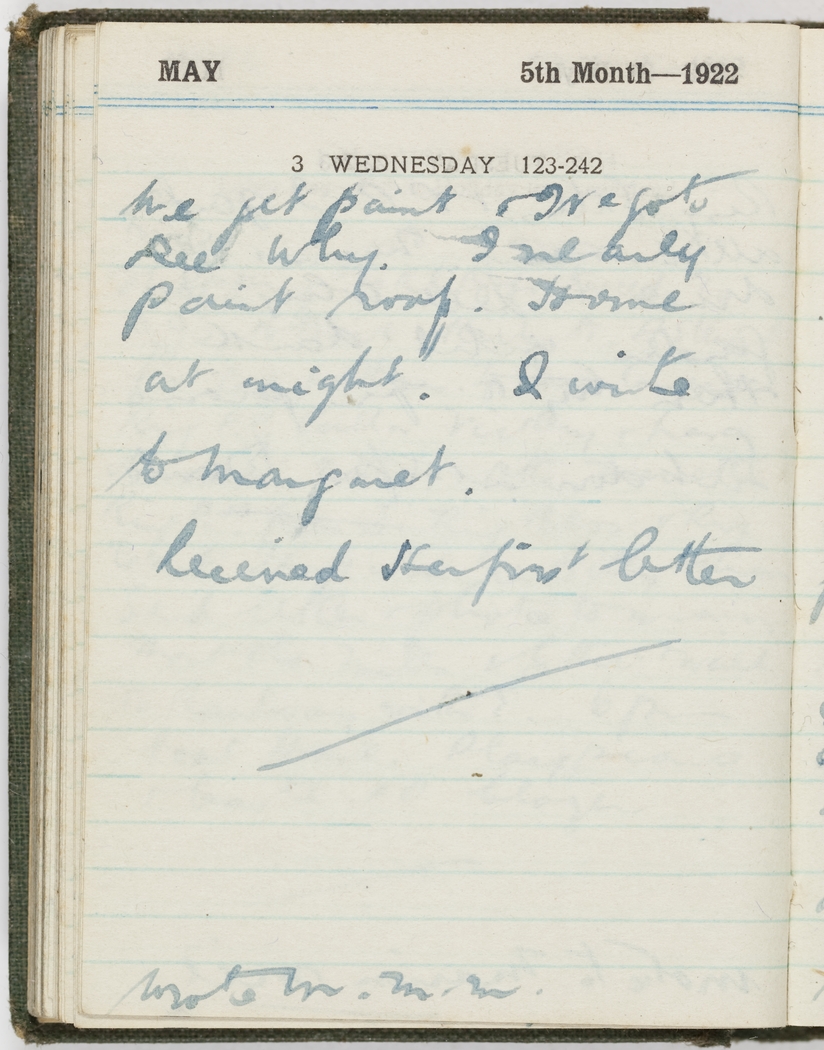 MAY 5th Month—1922
3 WEDNESDAY 123-242
We get paint & We go to
see Why. I nearly
paint roof. Home
at night. I write
to Margaret.
Received Her first letter
Wrote M. M. M.